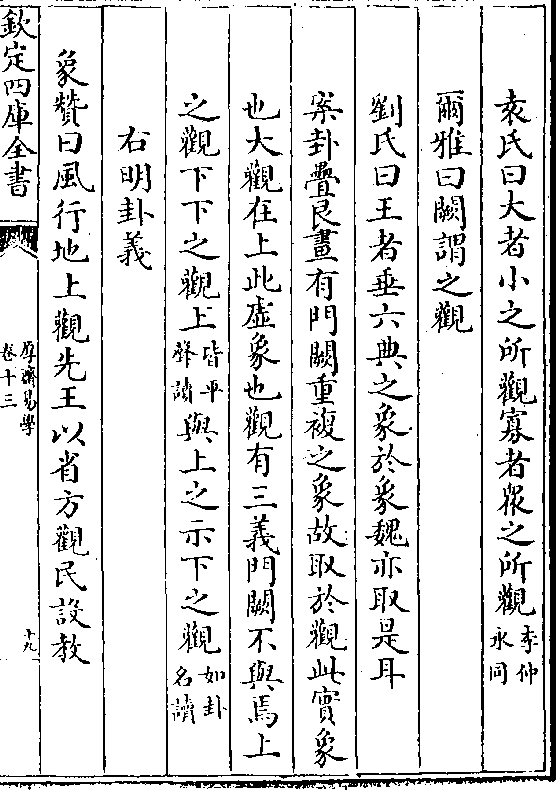 袁氏曰大者小之所觀寡者衆之所觀李仲永同
爾雅曰闕謂之觀
劉氏曰王者垂六典之象於象魏亦取是耳
案卦疊艮畫有門闕重複之象故取於觀此實象
也大觀在上此虛象也觀有三義門闕不與焉上
之觀下下之觀上皆平聲讀與上之示下之觀如卦名讀
右明卦義
象贊曰風行地上觀先王以省方觀民設教
欽定四庫全書
厚齋易學
卷十三
十九